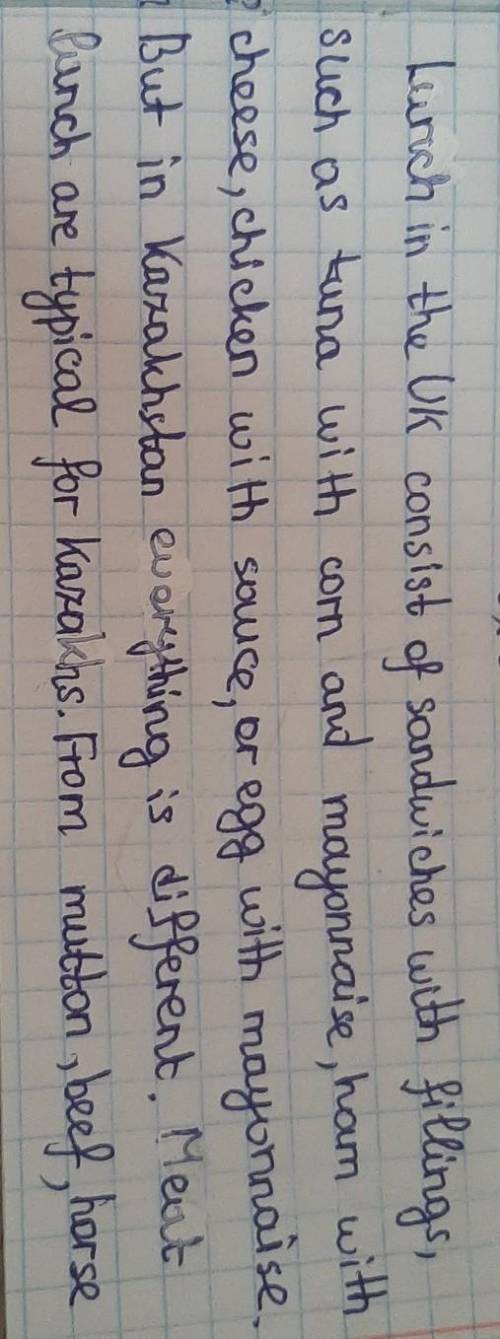 Lunch in the UK consist of sandwiches with fillings,
such as tuna with corn and mayonnaise, ham with
cheese, chicken with sauce, or egg with mayonnaise.
But in Kazakhstan everything is different. Meat
lunch are typical for Kazakhs. From mutton, beef, horse